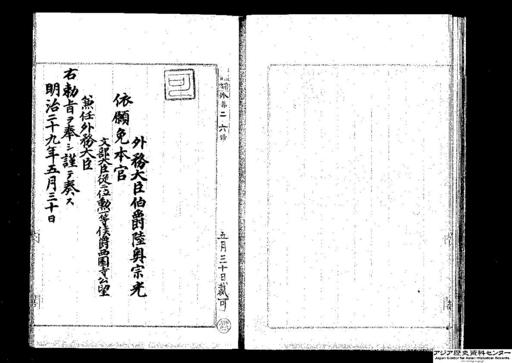 五月三十日裁可
外務大臣伯爵陸奥宗光
依願免本官
文部大臣従二位勲一等侯爵西園寺公望
兼任外務大臣
右勅旨ヲ奉シ謹テ奏ス
明治二十九年五月三十日
アジア歴史資料センター
Japan Center for Asian Historical Records